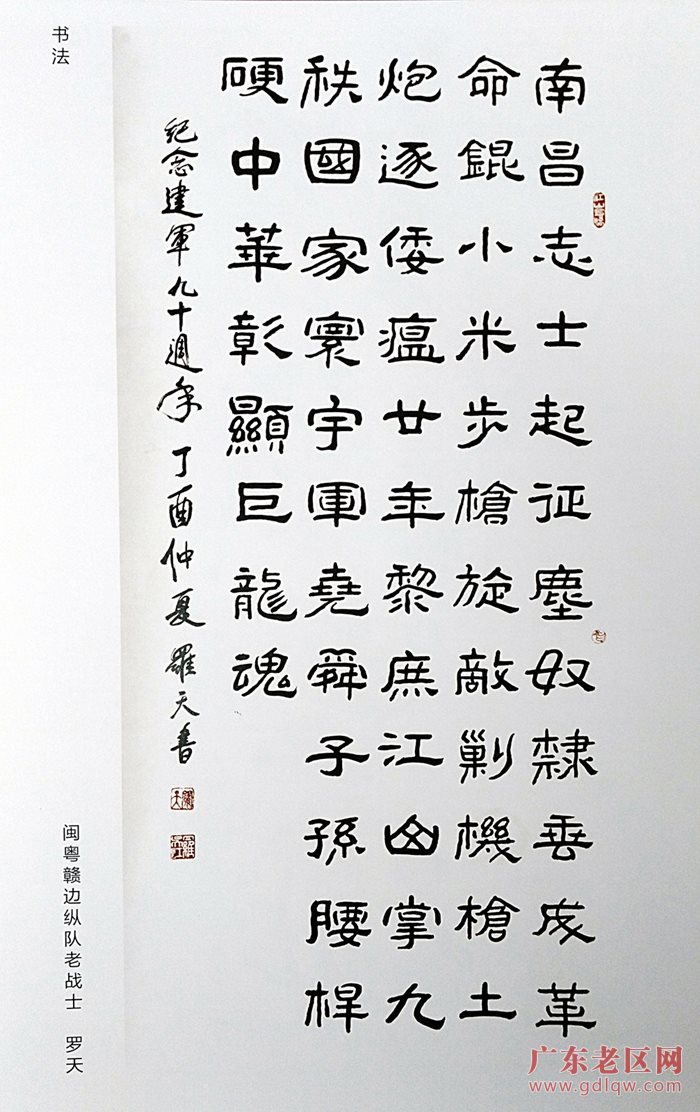 南昌志士起征塵奴隸垂成革
命錕小米步槍旋敵剿機槍土
炮逐倭瘟廿年黎庶江山掌九
秩國家寰宇軍堯舜子孫腰桿
硬中華彰顯巨龍魂
紀念建軍九十週年 丁酉仲夏 羅天書
书法
闽粤赣边纵队老战士 罗天
广东老区网
www.gdlqw.com